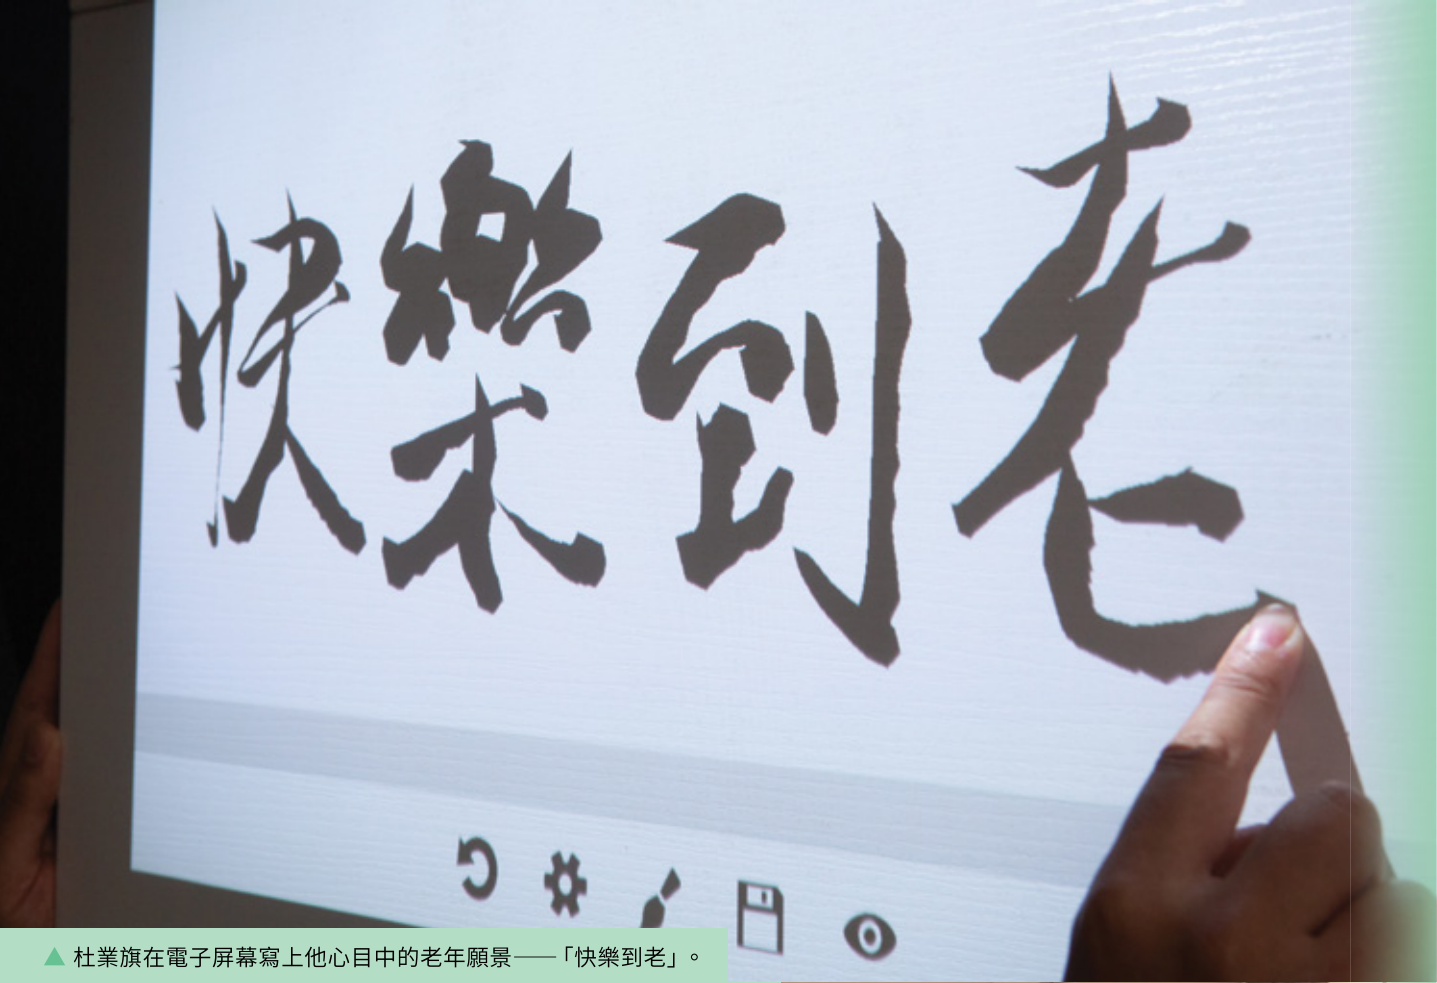 快樂到老
▲ 杜業旗在電子屏幕寫上他心目中的老年願景——「快樂到老」。